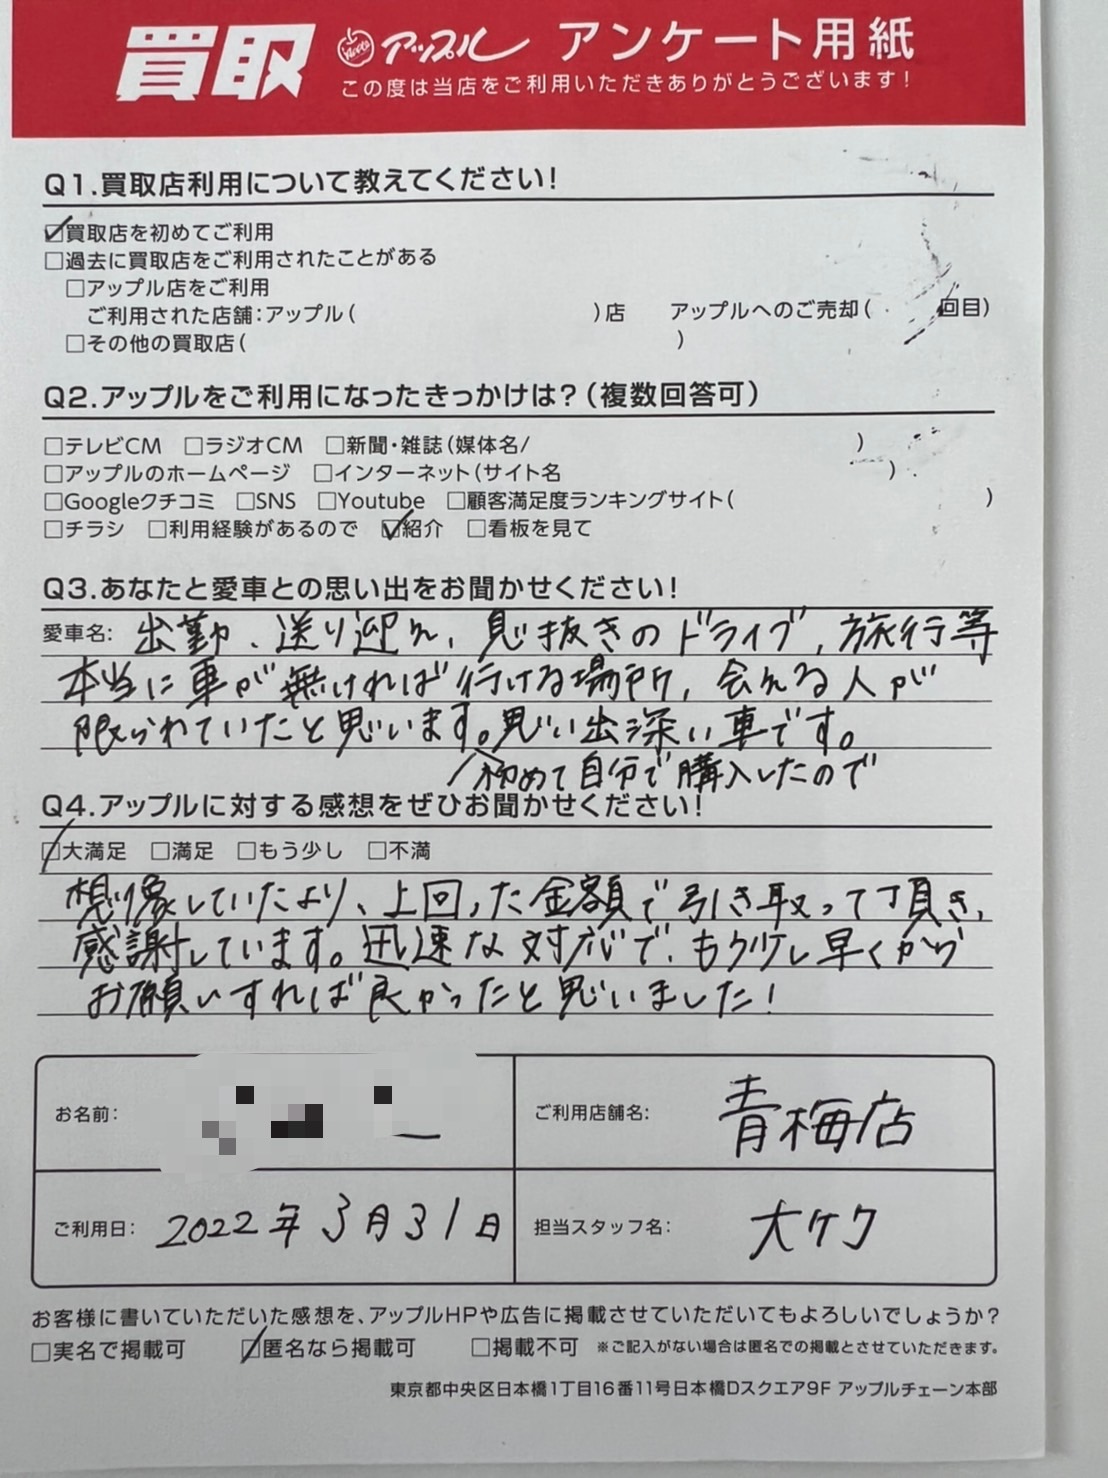 買取 アップル アンケート用紙
この度は当店をご利用いただきありがとうございます!
Q1.買取店利用について教えてください!
☑買取店を初めてご利用
□過去に買取店をご利用されたことがある
□アップル店をご利用
ご利用された店舗:アップル( )店 アップルへのご売却( 回目)
□その他の買取店( )
Q2.アップルをご利用になったきっかけは?(複数回答可)
□テレビCM □ラジオCM □新聞・雑誌(媒体名/ )
□アップルのホームページ □インターネット(サイト名 )
□Googleクチコミ □SNS □Youtube □顧客満足度ランキングサイト( )
□チラシ □利用経験があるので ☑紹介 □看板を見て
Q3.あなたと愛車との思い出をお聞かせください!
愛車名: 出勤、送り迎え、息抜きのドライブ、旅行等
本当に車が無ければ行ける場所、会える人が
限られていたと思います。思い出深い車です。
初めて自分で購入したので
Q4.アップルに対する感想をぜひお聞かせください!
☑大満足 □満足 □もう少し □不満
想像していたより、上回った金額で引き取って頂き、
感謝しています。迅速な対応で、もう少し早くから
お願いすれば良かったと思いました!
お名前:
ご利用店舗名: 青梅店
ご利用日: 2022年3月31日
担当スタッフ名: 大ケク
お客様に書いていただいた感想を、アップルHPや広告に掲載させていただいてもよろしいでしょうか?
□実名で掲載可 ☑匿名なら掲載可 □掲載不可 ※ご記入がない場合は匿名での掲載とさせていただきます。
東京都中央区日本橋1丁目16番11号日本橋Dスクエア9F アップルチェーン本部